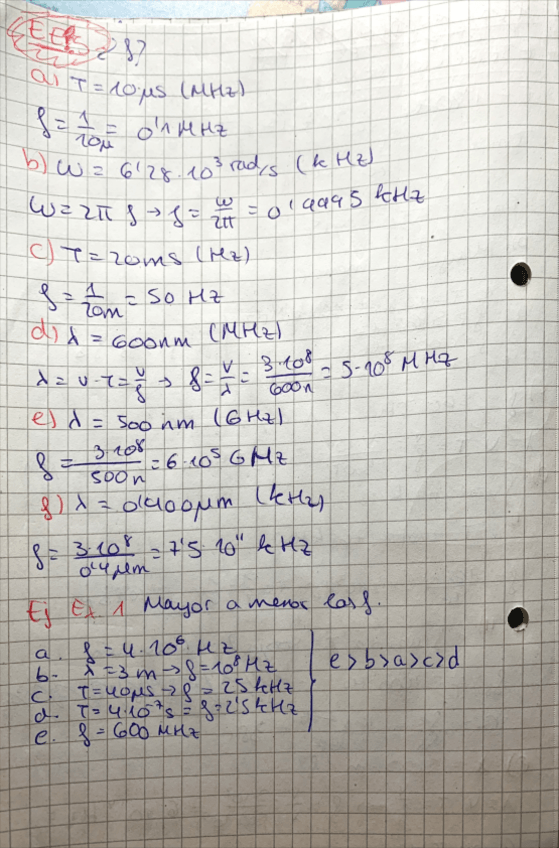 = f?
a) T = 10 μs (MHz)
f = 1/10μ = 0'1 MHz
b) ω = 6'28·10³ rad/s (kHz)
ω = 2π f → f = ω/2π = 0'9995 kHz
c) T = 20ms (Hz)
f = 1/20m = 50 Hz
d) λ = 600nm (MHz)
λ = v·T = v/f → f = v/λ = 3·10⁸/600n = 5·10⁸ MHz
e) λ = 500 nm (GHz)
f = 3·10⁸/500n = 6·10⁵ GHz
f) λ = 0'400μm (kHz)
f = 3·10⁸/0'4μm = 7'5·10¹¹ kHz
Ej Ex 1 Mayor a menor las f.
a. f = 4·10⁶ Hz
b. λ = 3 m → f = 10⁸ Hz
c. T = 40μs → f = 25 kHz
d. T = 4·10⁻⁷s = f = 2'5 kHz
e. f = 600 MHz
e > b > a > c > d